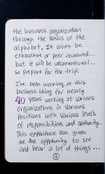 the business organization
through the basics of the
alphabet, It won't be
exhaustive or peer reviewed...
but it will be unconventional...
so prepare for the trip!
I've been working at this
business thing for nearly
40 years working at various
organizations in various
positions with various levels
of responsibilities and authority.
This experience has given
me the opportunity to see
and hear a lot of things...